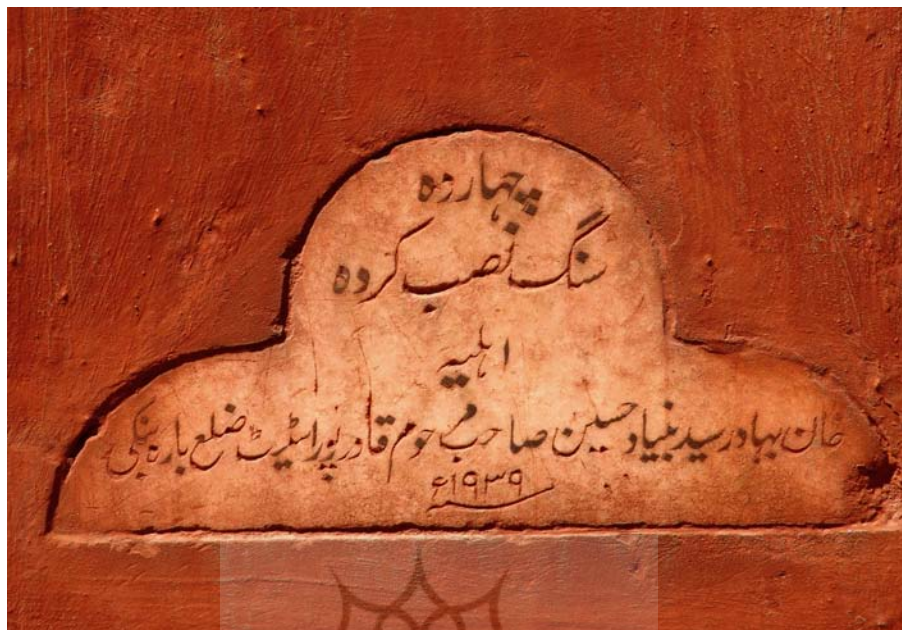 چہاردہ
سنگ نصب کردہ
اہلیہ
خان بہادر سید بنیاد حسین صاحب مرحوم قادرپور اسٹیٹ ضلع بارہ بنکی
سنہ ۱۹۳۹ء